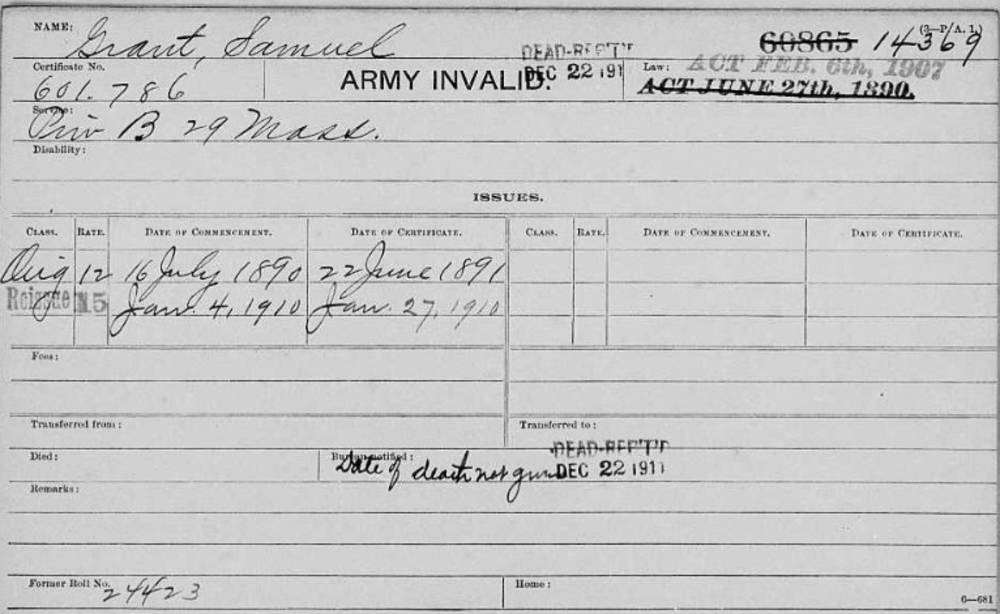 NAME: Grant, Samuel
DEAD-REP'T'D
DEC 22 191
60865 14369
(3-P/A. 1.)
Certificate No. 601.786
ARMY INVALID.
Law: ACT FEB. 6th, 1907
ACT JUNE 27th, 1890.
Service: Priv B 29 Mass.
Disability:
ISSUES.
CLASS. RATE. DATE OF COMMENCEMENT. DATE OF CERTIFICATE. CLASS. RATE. DATE OF COMMENCEMENT. DATE OF CERTIFICATE.
Orig 12 16 July 1890 22 June 1891
Reissue 15 Jan. 4, 1910 Jan. 27, 1910
Fees:
Transferred from: Transferred to:
Died: Bureau notified: Date of death not given
DEAD-REP'T'D
DEC 22 1911
Remarks:
Former Roll No. 24423 Home:
6—681